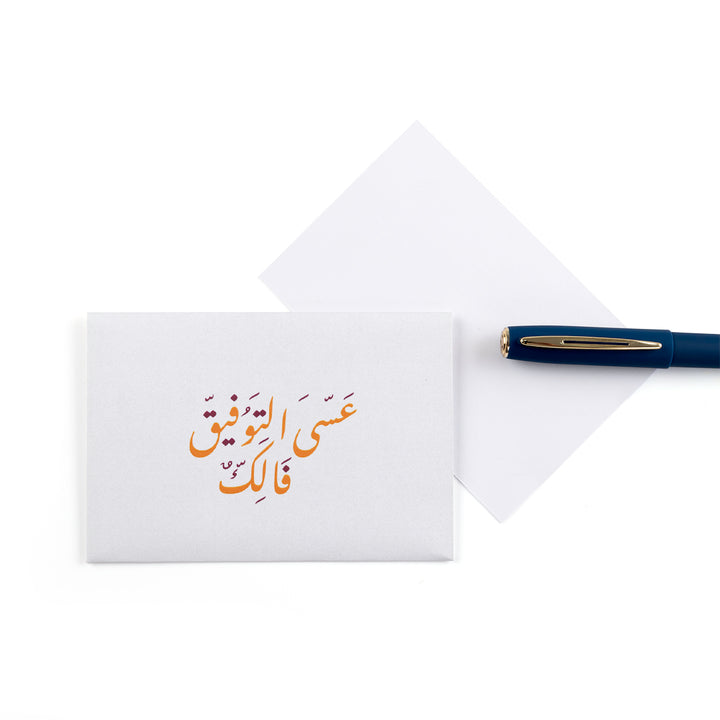 عَسّىَ التِوَفيقّ
فَالِكّ